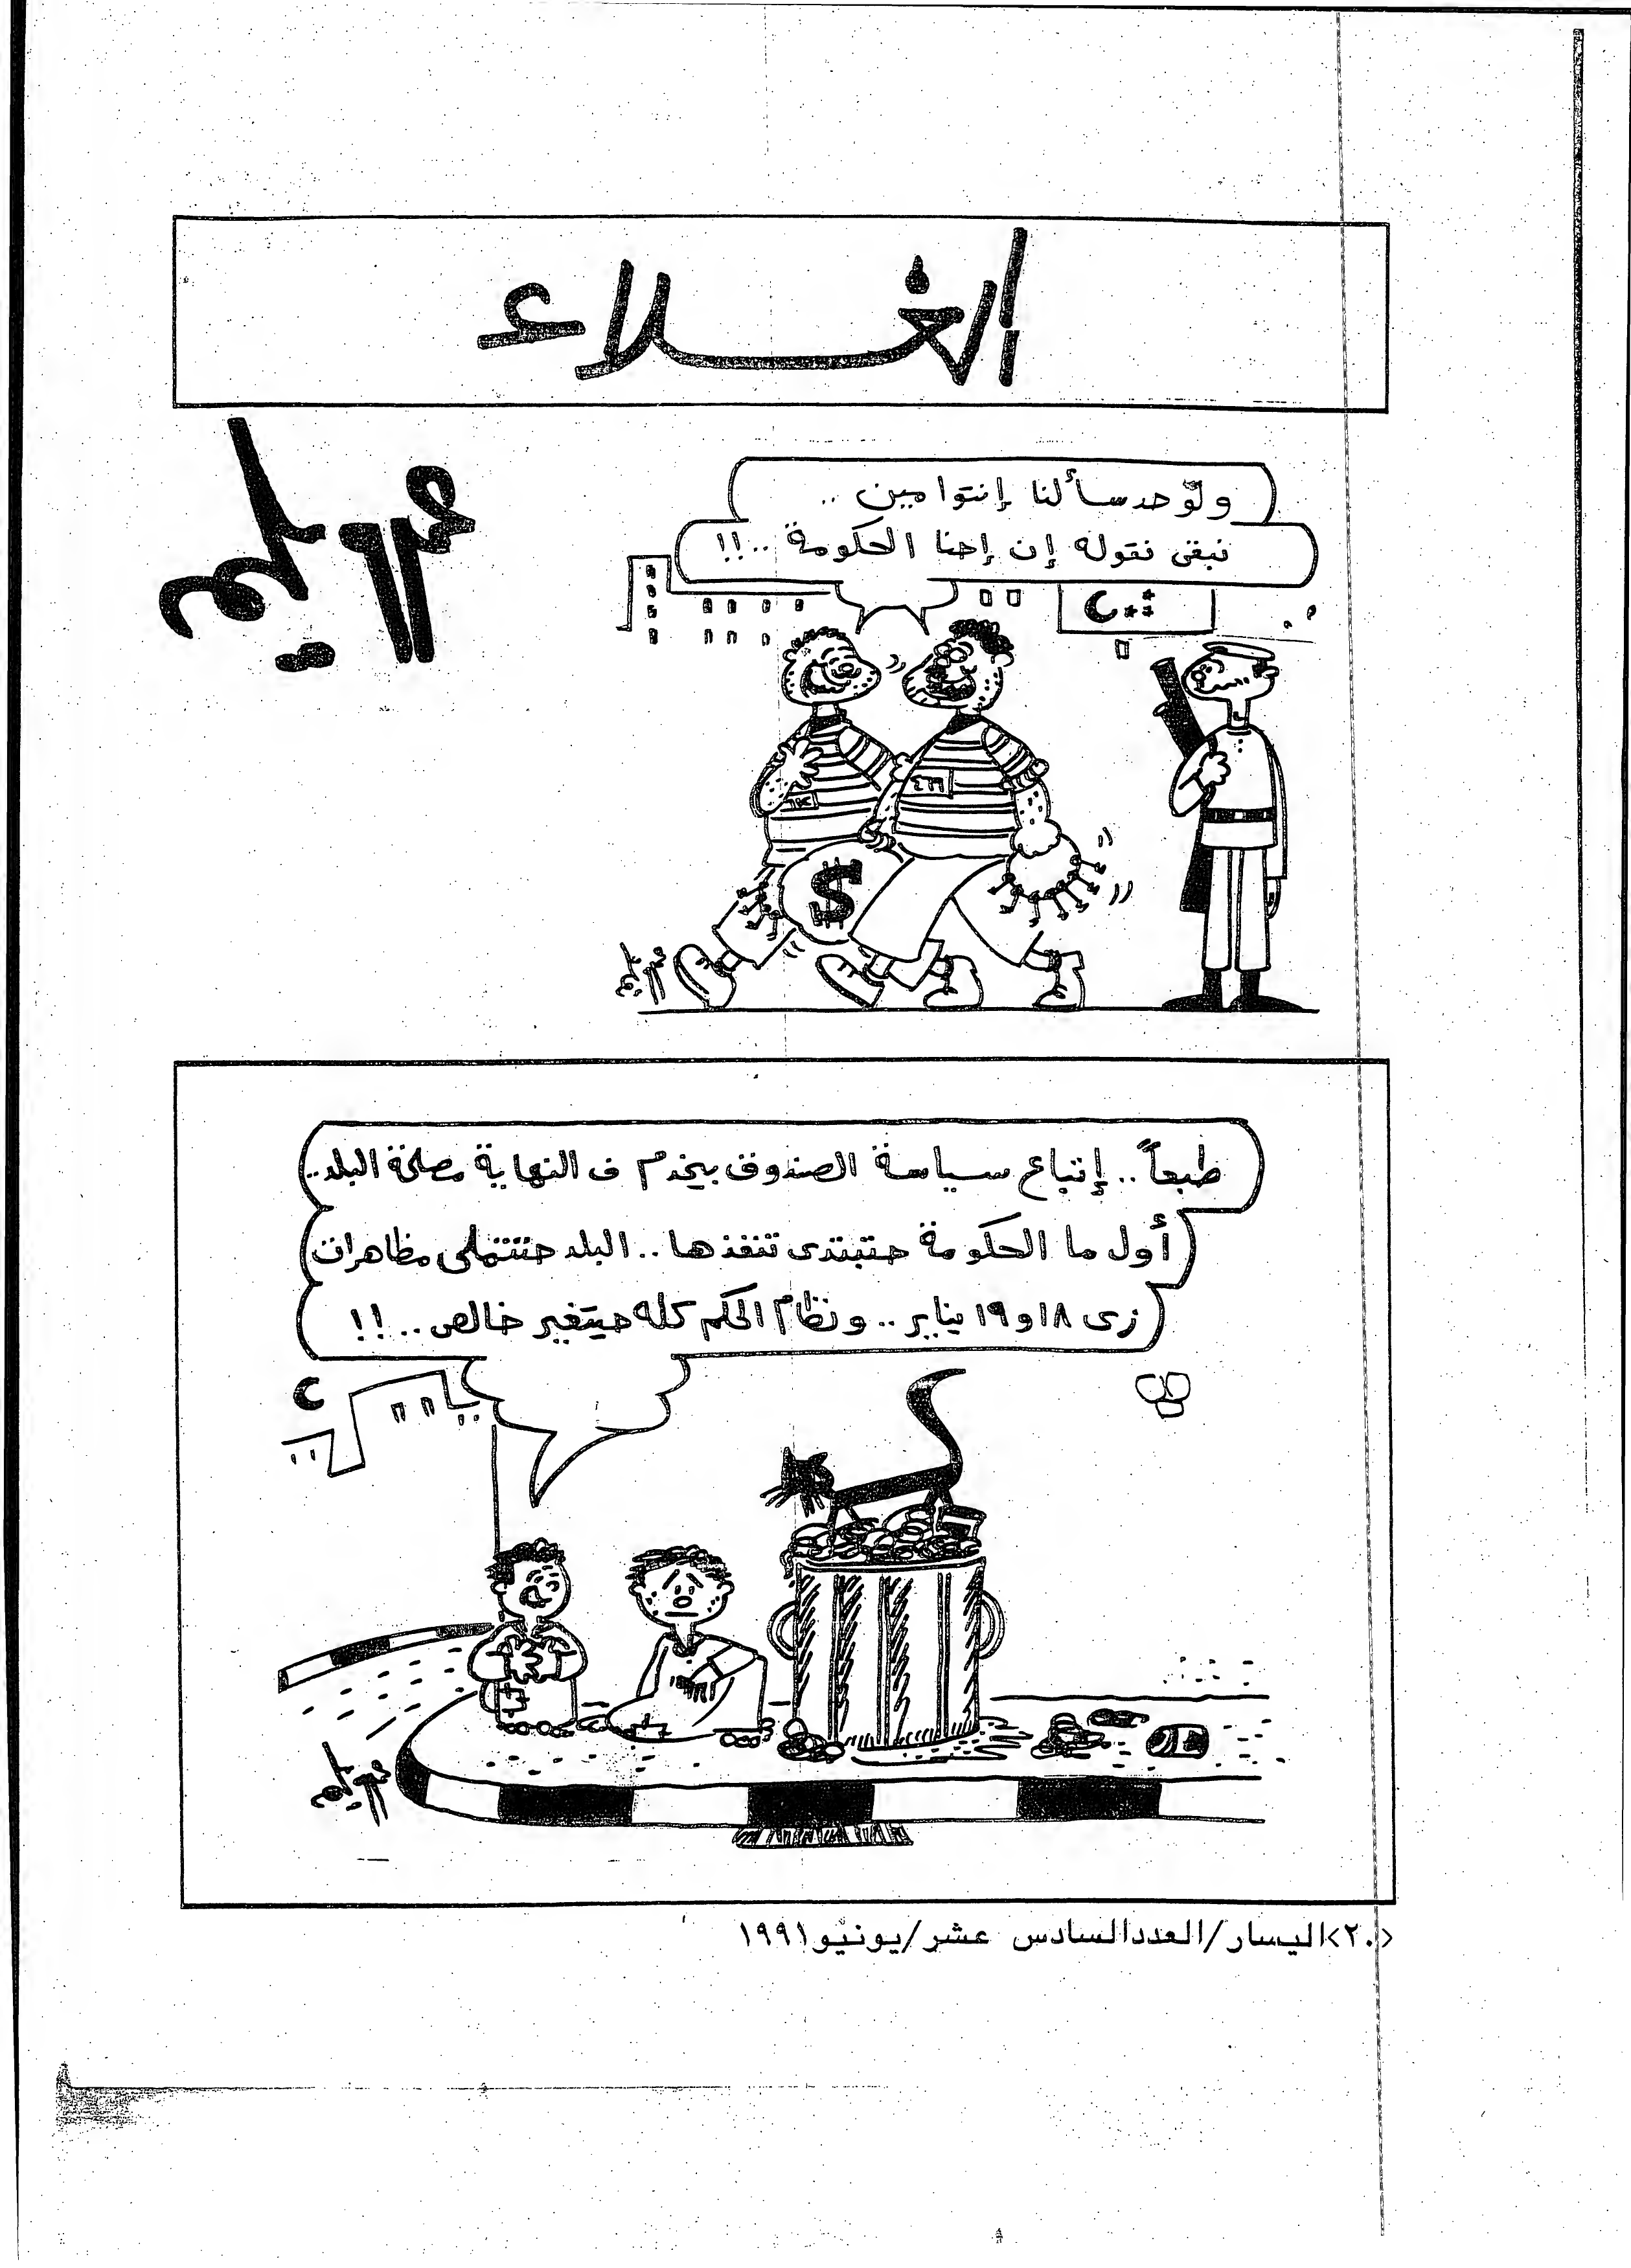 الغلاء
ولو حد سألنا إنتوا مين ..
نبقى نقوله إن إحنا الحكومة ..!!
٤٦٦
$
طبعاً .. إتباع سياسة الصندوق بيخدم ف النهاية مصلحة البلد ..
أول ما الحكومة حتبتدى تنفذها .. البلد حتتملى مظاهرات
زى ١٨ و ١٩ يناير .. ونظام الحكم كله حيتغير خالص ..!!
<٢٠>اليسار/العدد السادس عشر/يونيو ١٩٩١